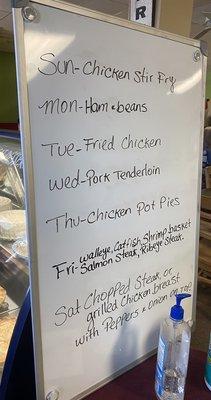 R
Sun-Chicken Stir Fry
Mon-Ham & beans
Tue-Fried Chicken
Wed-Pork Tenderloin
Thu-Chicken Pot Pies
Fri- Walleye, Catfish, Shrimp basket
Salmon Steak, Ribeye Steak.
Sat Chopped Steak or
grilled Chicken breast
with Peppers & onion on top